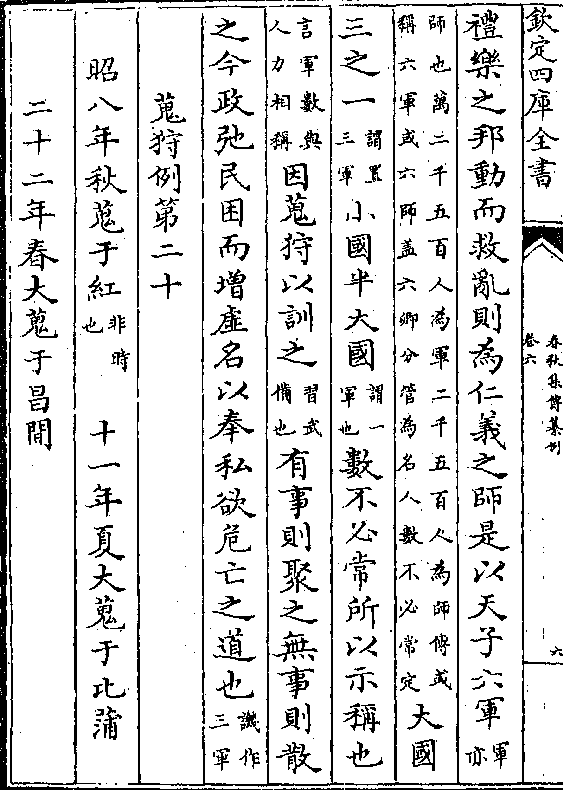 欽定四庫全書
春秋集傳纂例
卷六
六
禮樂之邦動而救亂則為仁義之師是以天子六軍軍亦
師也萬二千五百人為軍二千五百人為師傳或
稱六軍或六師蓋六卿分管為名人數不必常定大國
三之一謂置三軍小國半大國謂一軍也數不必常所以示稱也
言軍數與人力相稱因蒐狩以訓之習武備也有事則聚之無事則散
之今政弛民困而增虛名以奉私欲危亡之道也譏作三軍
蒐狩例第二十
昭八年秋蒐于紅非時也 十一年夏大蒐于比蒲
二十二年春大蒐于昌間